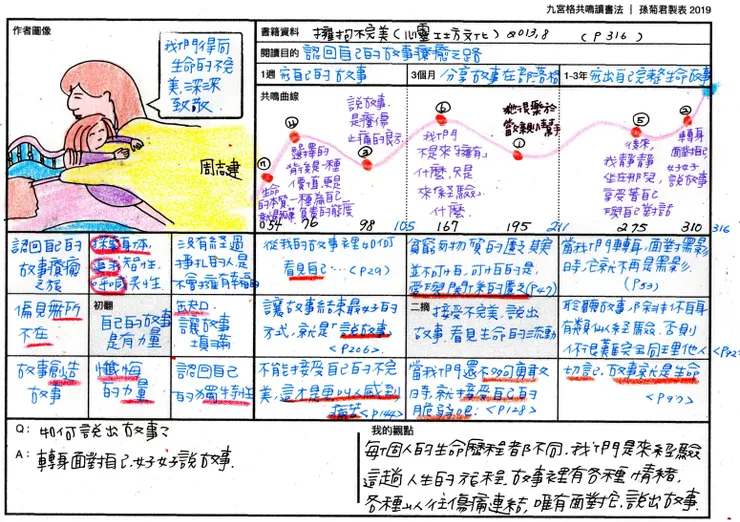 九宮格共鳴讀書法 | 孫菊君製表 2019
作者圖像
我們得向
生命的不完
美,深深
致敬.
周志建
書籍資料 擁抱不完美(心靈工坊文化) 2013,8 (P316)
閱讀目的 認回自己的故事療癒之路
1週 寫自己的故事
3個月 分享故事在部落格
1-3年 寫出自己完整生命故事
共鳴曲線
生命
的本質
選擇的
背後是一種
價值,更是
一種為自己
負責的態度
說故事,
是療傷
止痛的
我們
不是來「擁有」
什麼,只是
來「經驗」
什麼.
她很樂於
當幫手
後來,
我靜靜
坐在那兒,
享受著自己
跟自己對話
轉身
面對自己
好好
說故事
0 54 76 98 105 167 195 211 275 310 316
認回自己的
故事療癒
之旅
擁身體,
追求智性,
呼喚靈性
沒有經過
掙扎的人是
不會擁有幸福的
偏見無所
不在
初翻
自己的故事
是有力量
缺口,
讓故事
填滿
故事創造
故事
懺悔
的力量
認回自己
的獨特性
從我的故事裡如何
看見自己…(P29)
貧窮物質的匱乏其實
並不可怕,可怕的是,
愛與關係的匱乏(P47)
當我們轉身,面對黑影
時,它就不再是黑影.
(P53)
讓故事結束最好的
方式,就是「說故事」
<P206>
二摘
接受不完美,說出
故事,看見生命的流動
聆聽故事,除非你自身
有類似經驗,否則
你很難完全同理他人
不能接受自己的不完
美,這才是更叫人感到
<P144>
當我們還不夠勇敢
時,就接受自己的
脆弱吧.<P128>
切記:故事就是生命
<P97>
Q: 如何說出故事?
A: 轉身面對自己,好好說故事.
我的觀點
每個人的生命歷程都不同,我們是來經驗
這趟人生的旅程,故事裡有各種情緒,
各種以往傷痛連結,唯有面對它,說出故事.